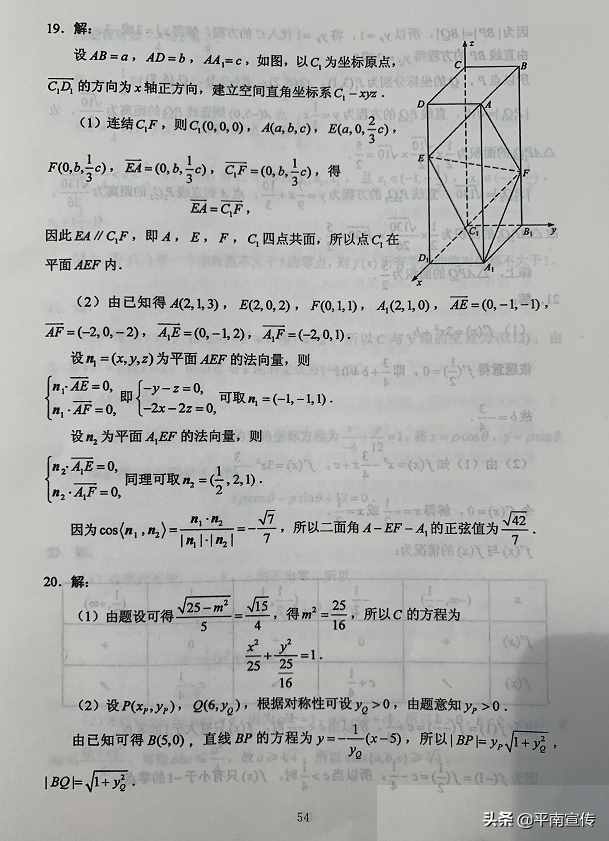 19. 解:
设 AB = a, AD = b, AA₁ = c, 如图, 以 C₁ 为坐标原点,
$\overrightarrow{C_1D_1}$ 的方向为 x 轴正方向, 建立空间直角坐标系 C₁ − xyz.
(1) 连结 C₁F, 则 C₁(0,0,0), A(a,b,c), E(a,0,$\frac{2}{3}$c),
F(0,b,$\frac{1}{3}$c), $\overrightarrow{EA}$ = (0,b,$\frac{1}{3}$c), $\overrightarrow{C_1F}$ = (0,b,$\frac{1}{3}$c), 得
$\overrightarrow{EA}$ = $\overrightarrow{C_1F}$,
因此 EA // C₁F, 即 A, E, F, C₁ 四点共面, 所以点 C₁ 在
平面 AEF 内.
z
C
B
D
A
E
F
C₁
B₁
y
D₁
A₁
x
(2) 由已知得 A(2,1,3), E(2,0,2), F(0,1,1), A₁(2,1,0), $\overrightarrow{AE}$ = (0,−1,−1),
$\overrightarrow{AF}$ = (−2,0,−2), $\overrightarrow{A_1E}$ = (0,−1,2), $\overrightarrow{A_1F}$ = (−2,0,1).
设 n₁ = (x,y,z) 为平面 AEF 的法向量, 则
$\begin{cases} n_1\cdot\overrightarrow{AE}=0, \\ n_1\cdot\overrightarrow{AF}=0, \end{cases}$ 即 $\begin{cases} -y-z=0, \\ -2x-2z=0, \end{cases}$ 可取 n₁ = (−1,−1,1).
设 n₂ 为平面 A₁EF 的法向量, 则
$\begin{cases} n_2\cdot\overrightarrow{A_1E}=0, \\ n_2\cdot\overrightarrow{A_1F}=0, \end{cases}$ 同理可取 n₂ = ($\frac{1}{2}$,2,1).
因为 cos⟨n₁,n₂⟩ = $\frac{n_1\cdot n_2}{|n_1|\cdot|n_2|}$ = −$\frac{\sqrt{7}}{7}$, 所以二面角 A − EF − A₁ 的正弦值为 $\frac{\sqrt{42}}{7}$.
20. 解:
(1) 由题设可得 $\frac{\sqrt{25-m^2}}{5}$ = $\frac{\sqrt{15}}{4}$, 得 m² = $\frac{25}{16}$, 所以 C 的方程为
$\frac{x^2}{25}+\frac{y^2}{\frac{25}{16}}=1$.
(2) 设 P(x_P, y_P), Q(6, y_Q), 根据对称性可设 y_Q > 0, 由题意知 y_P > 0.
由已知可得 B(5,0), 直线 BP 的方程为 y = −$\frac{1}{y_Q}$(x−5), 所以 |BP| = y_P$\sqrt{1+y_Q^2}$,
|BQ| = $\sqrt{1+y_Q^2}$.
54
头条 @平南宣传